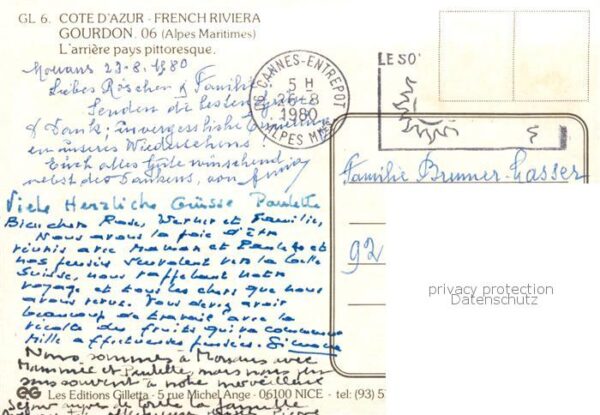 GL 6. COTE D'AZUR - FRENCH RIVIERA
GOURDON. 06 (Alpes Maritimes)
L'arrière pays pittoresque.
Mouans 23-8.1980
Liebes Röschen & Familie!
Senden die besten Grüsse
& Dank; unvergessliche
en unseres Wiedersehens!
Euch alles Gute wünschend
nebst des Dankens, von
Viele Herzliche Grüsse Paulette
Bien chers Rose, Werner et Famille,
Nous avons la joie d'être
réunis avec Maman et Paulette et
nos pensées s'envolent vers la belle
Suisse, nous rappelant notre
voyage et tous les chers que nous
avons revus. Vous devez avoir
beaucoup de travail avec la
récolte des fruits qui va commencer
Mille affectueuses pensées. Simone
Nous sommes à Mouans avec
Mammie et Paulette, mais nous
souvent à notre merveilleux
Séjour
06 CANNES-ENTREPOT
5 H
26-8
1980
ALPES MMES
LE SO'
Familie Brunner-Gasser
92
privacy protection
Datenschutz
Les Editions Gilletta - 5 rue Michel Ange - 06100 NICE - tel: (93) 5